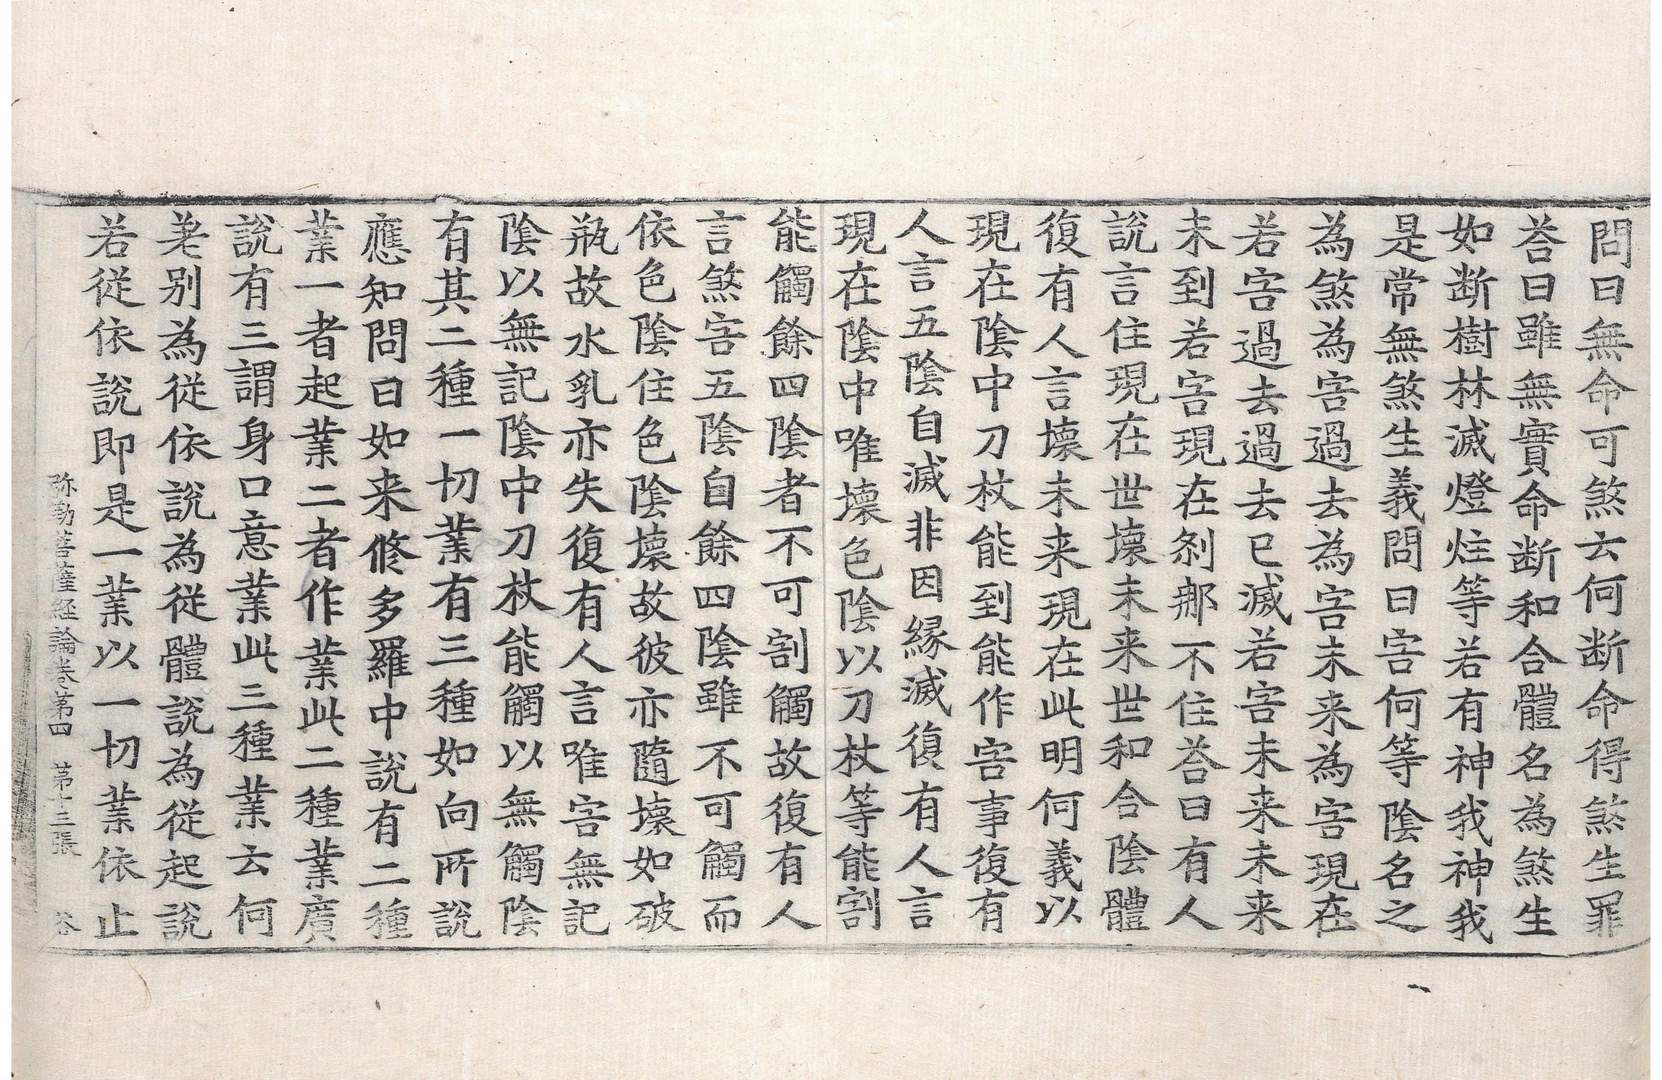 問曰無命可煞云何断命得煞生罪
荅曰雖無實命断和合體名為煞生
如断樹林滅燈炷等若有神我神我
是常無煞生義問曰害何等陰名之
為煞為害過去為害未来為害現在
若害過去過去已滅若害未来未来
未到若害現在刹那不住荅曰有人
說言住現在世壊未来世和合陰體
復有人言壊未来現在此明何義以
現在陰中刀杖能到能作害事復有
人言五陰自滅非因縁滅復有人言
現在陰中唯壊色陰以刀杖等能割
能觸餘四陰者不可割觸故復有人
言煞害五陰自餘四陰雖不可觸而
依色陰住色陰壊故彼亦隨壊如破
瓶故水乳亦失復有人言唯害無記
陰以無記陰中刀杖能觸以無觸陰
有其二種一切業有三種如向所說
應知問曰如来修多羅中說有二種
業一者起業二者作業此二種業廣
說有三謂身口意業此三種業云何
差别為従依說為従體說為従起說
若従依說即是一業以一切業依止
弥勒菩薩経論卷第四 苐十三張 荅